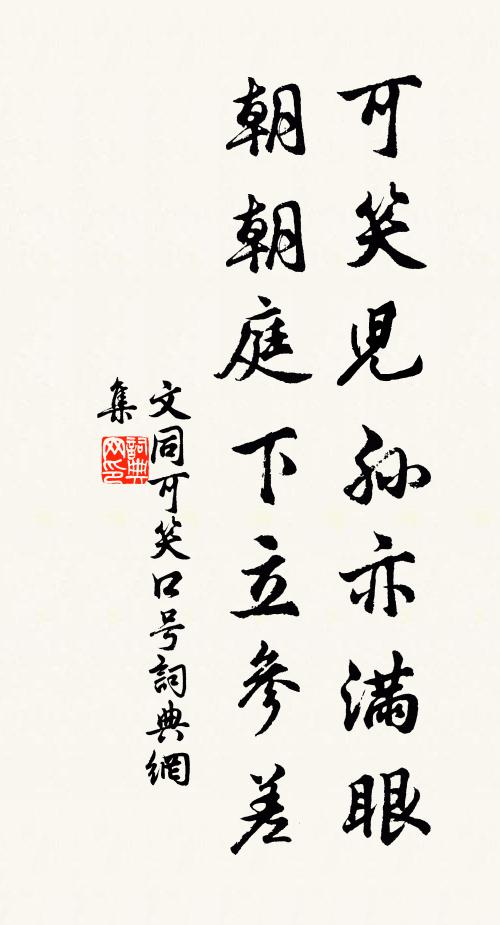 可笑児孫亦满眼
朝朝庭下立参差
文同可笑口号詞典網
集
詞典网印